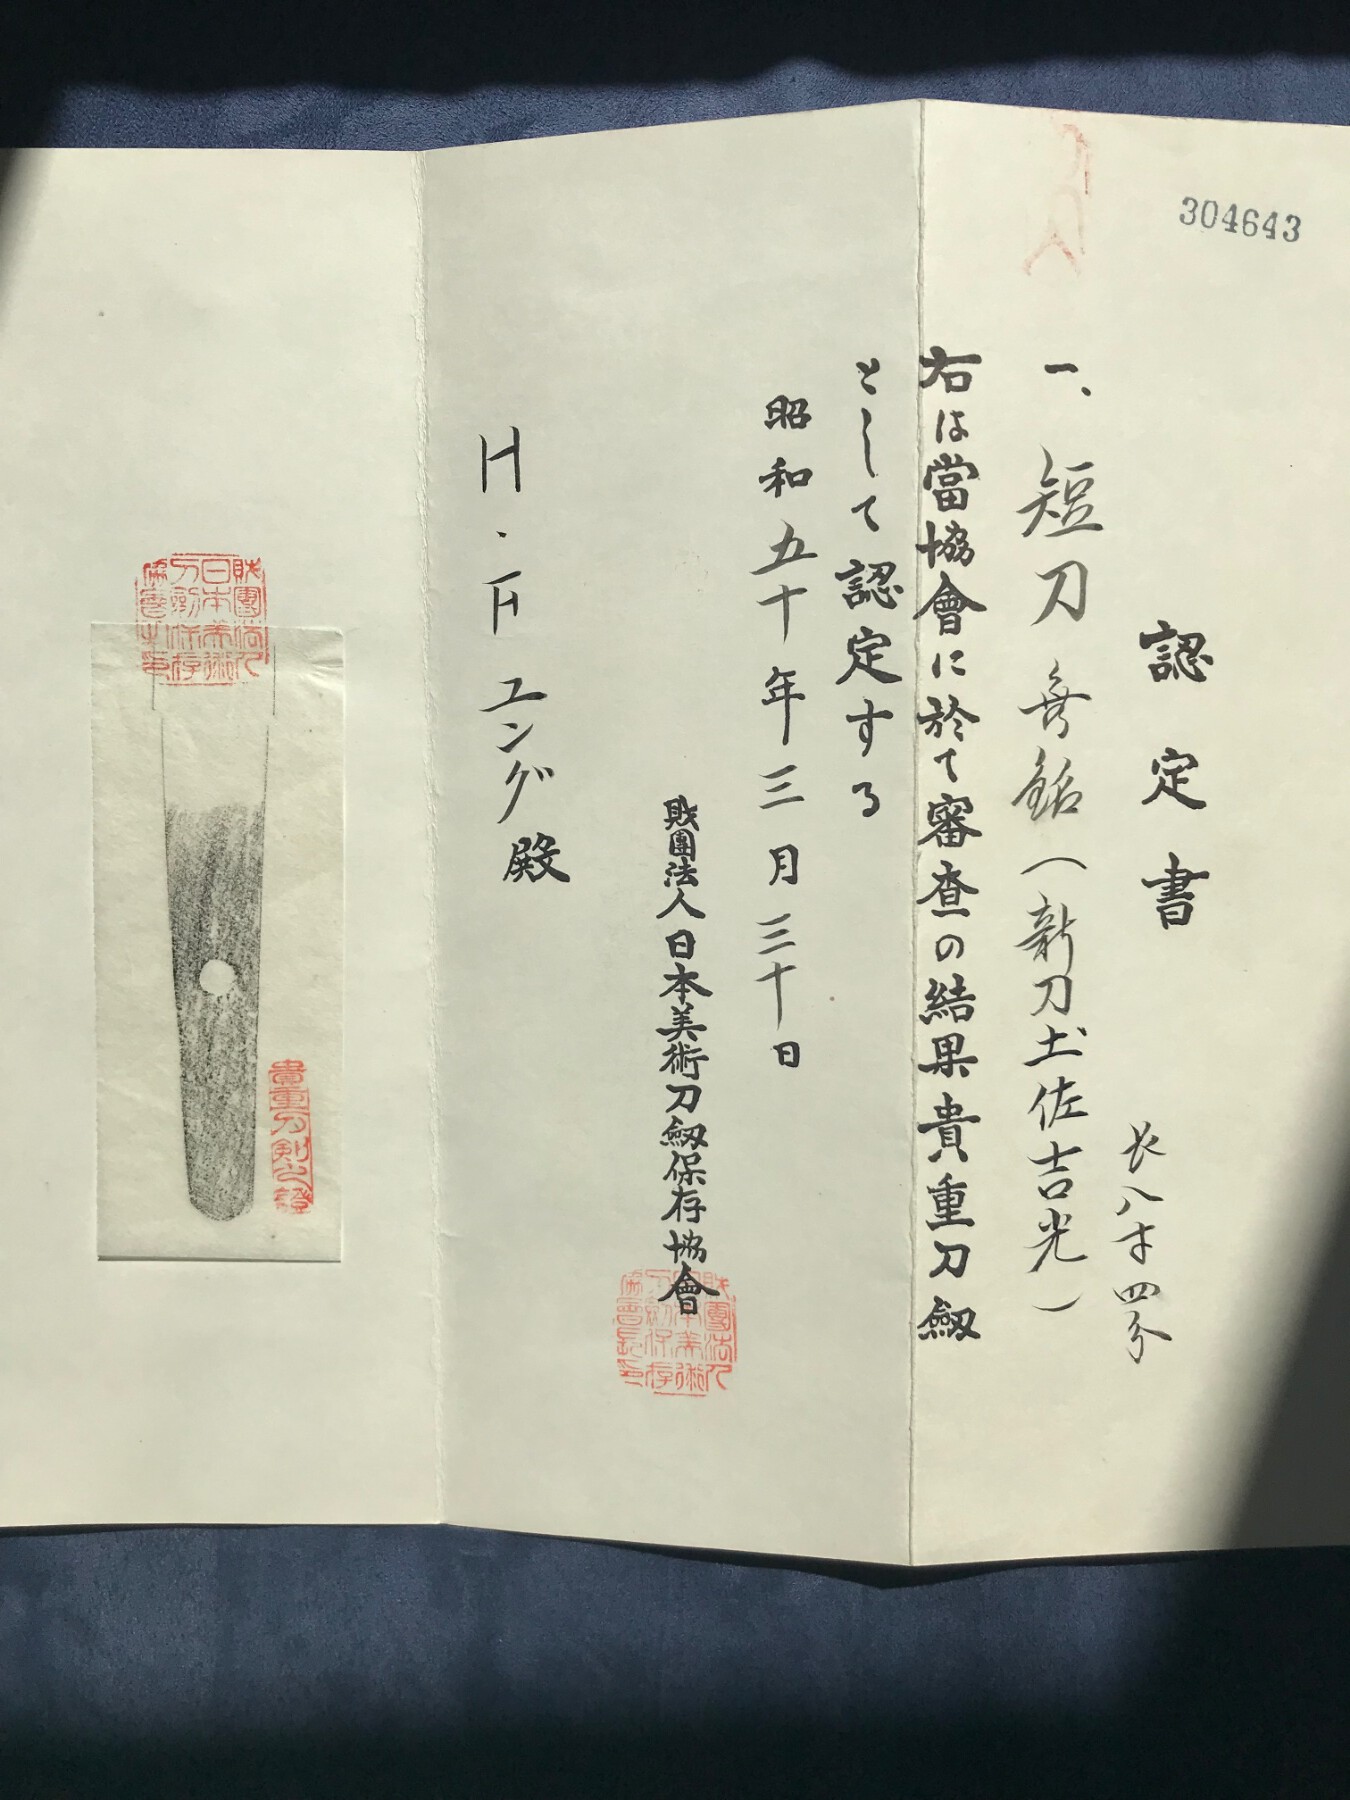 304643
認定書
長八寸四分
一、短刀 無銘(新刀土佐吉光)
右は當協會に於て審査の結果貴重刀劔
として認定する
昭和五十年三月三十日
財團法人日本美術刀劔保存協會
財團法人日本美術刀劍保存協會長印
H・F ユング殿
財團法人日本美術刀劍保存協會之印
貴重刀剣之證